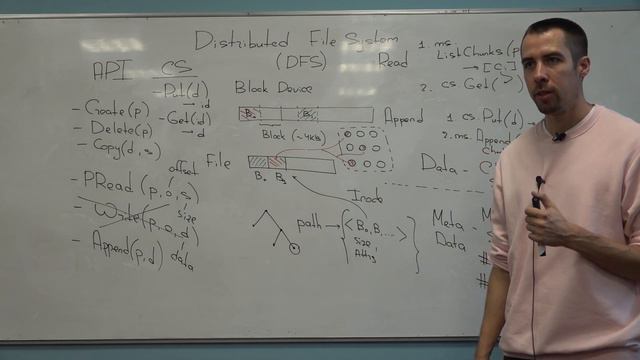 Distributed File System
(DFS)
API
CS
- Put(d)
→ id
- Get(d)
→ d
- Create(p)
- Delete(p)
- Copy(d, s)
offset
- PRead(p, o, s)
size
- Write(p, o, d)
- Append(p, d)
data
Block Device
Block (~4KB)
File
B₀
path → <B₀, B₁, ...>
Size
Attrs
Inode
Read
1. ms.
ListChunks(p
→ [Ci]
2. cs Get( )
Append
1 cs Put(d) →
2. ms. Append
Data - C
Meta - M
Data
#
#